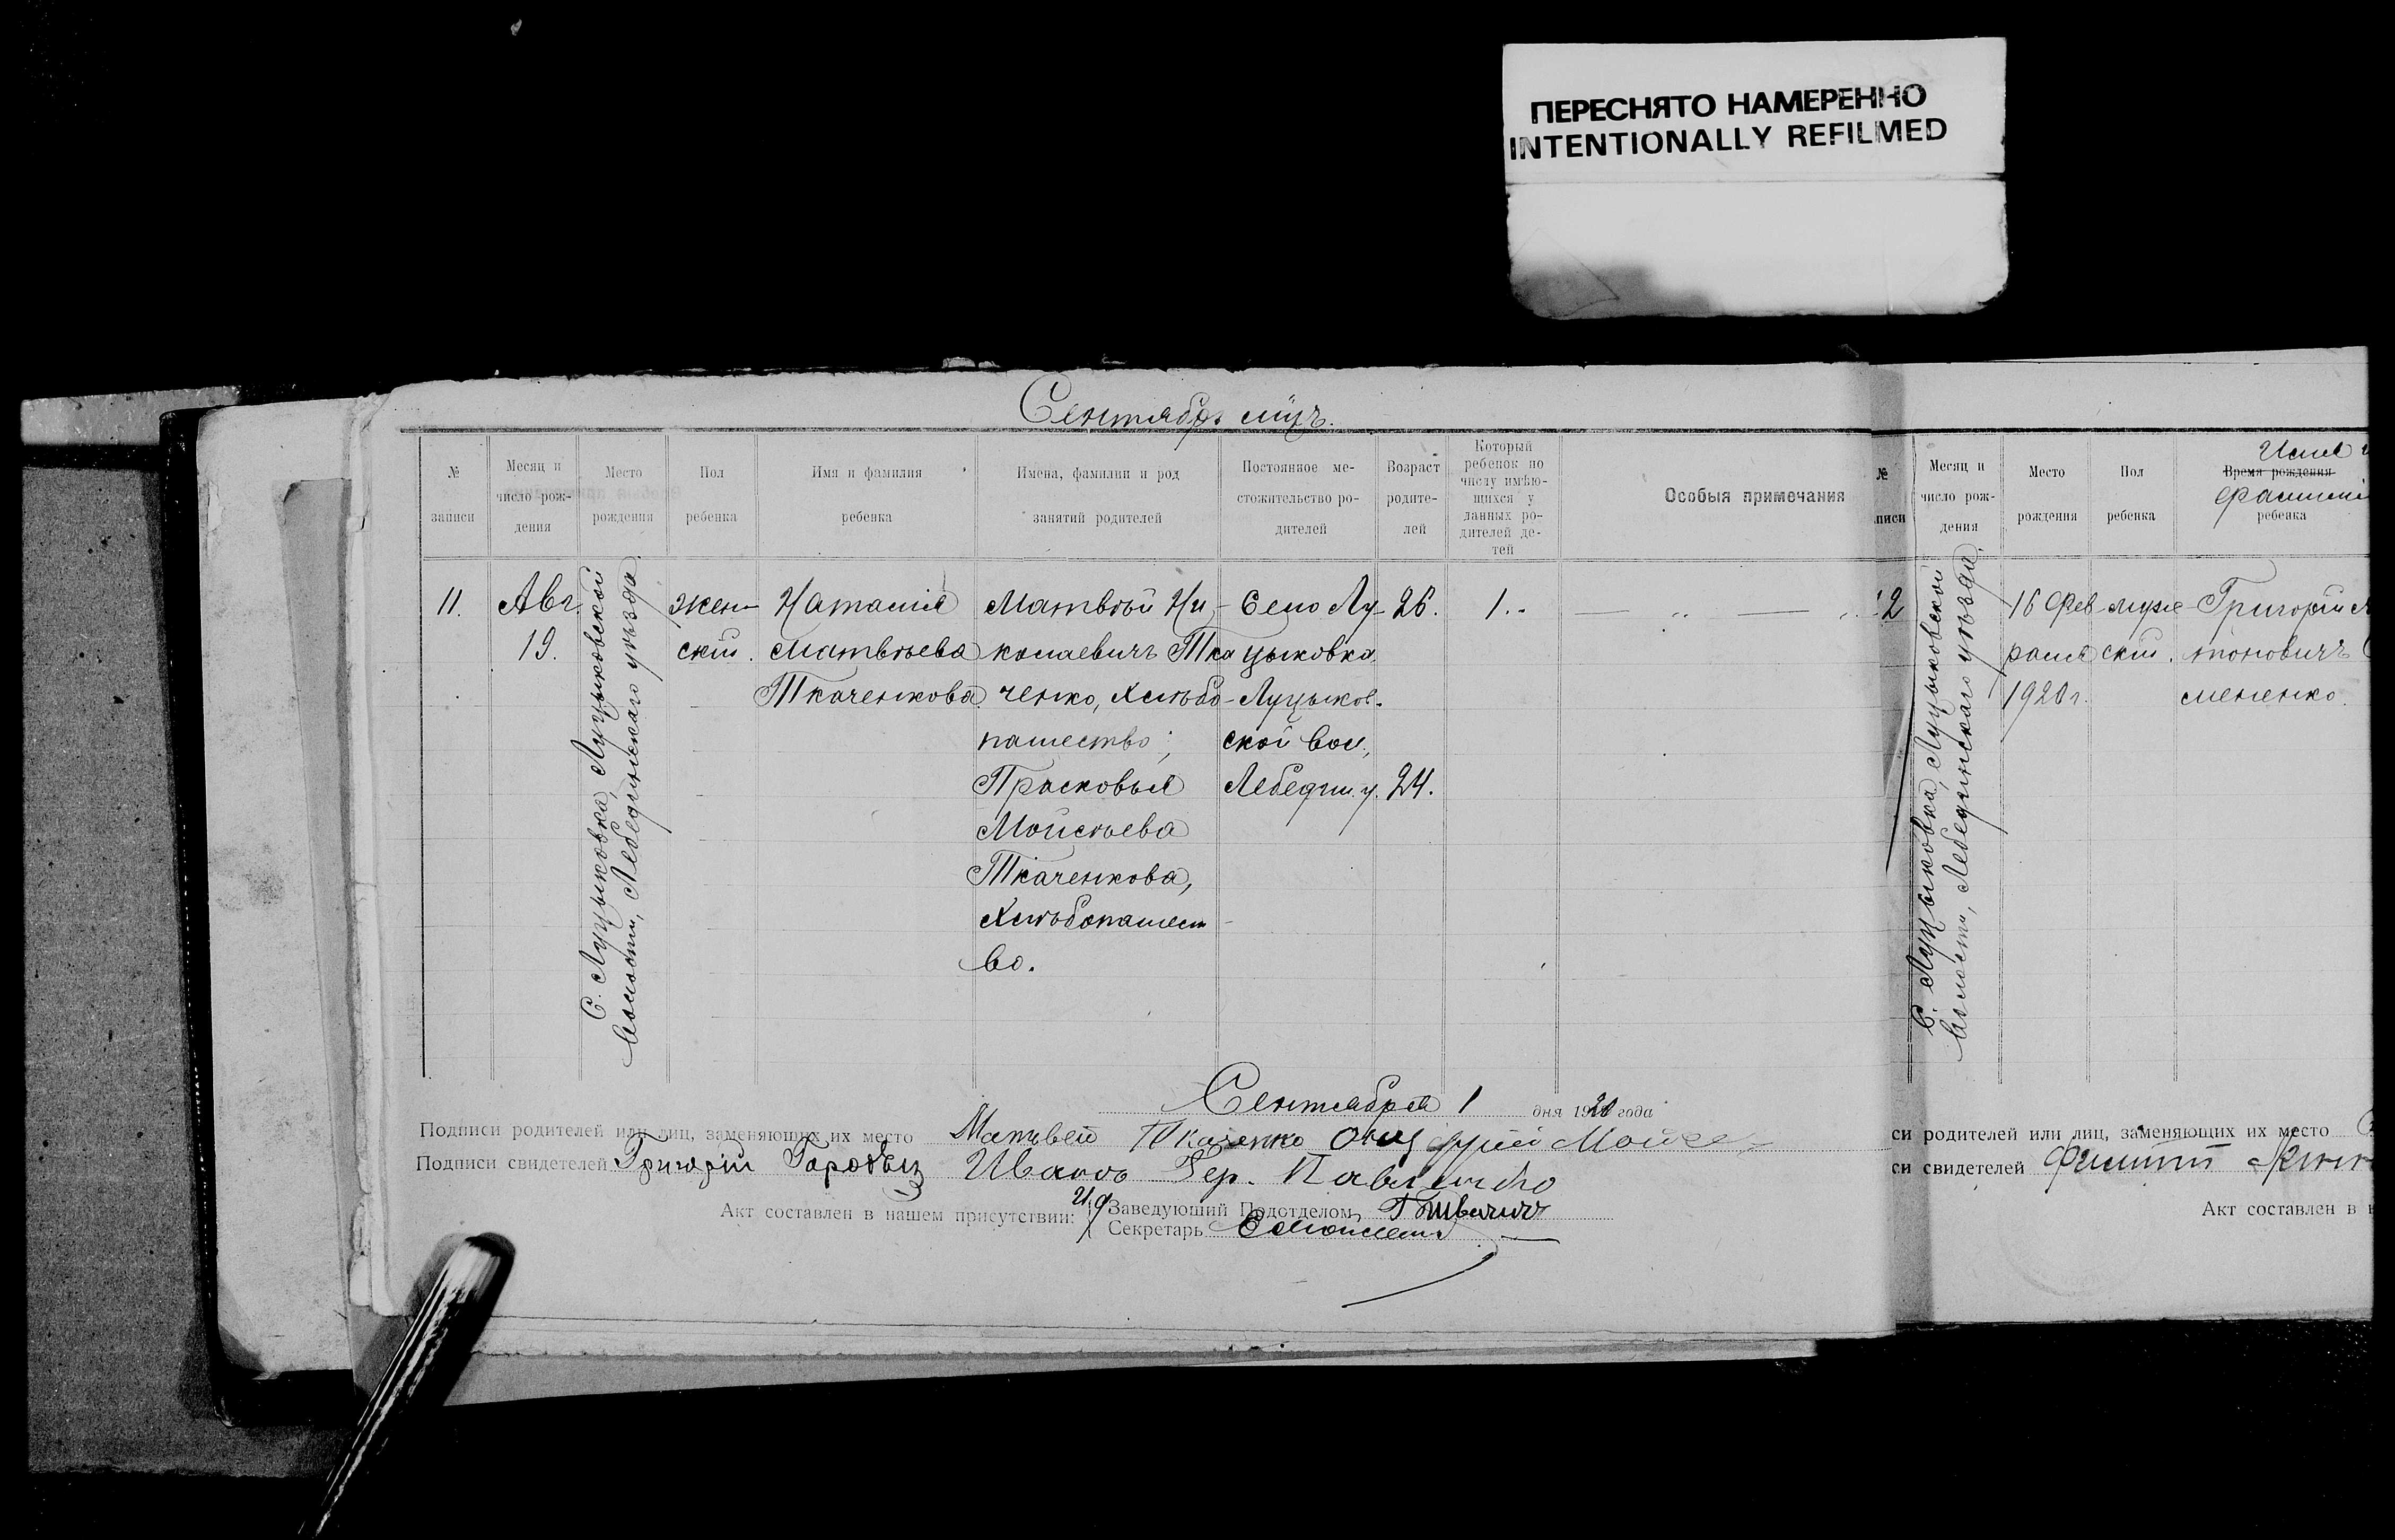 ПЕРЕСНЯТО НАМЕРЕННО
INTENTIONALLY REFILMED
Сентябрь мцъ.
№ записи
Месяц и число рож-дения
Место рождения
Пол ребенка
Имя и фамилия ребенка
Имена, фамилии и род занятий родителей
Постоянное ме-стожительство ро-дителей
Возраст родите-лей
Который ребенок по числу имѣю-щихся у данных ро-дителей де-тей
Особыя примечания
11.
Авг.
19.
С. Луцыковка, Луцыковской
волости, Лебединскаго уѣзда.
жен-
ский.
Наталія
Матвѣева
Ткаченкова
Матвѣй Ни-
колаевичъ Тка
ченко, хлѣбо-
пашество;
Прасковья
Мойсѣева
Ткаченкова,
хлѣбопашест
во.
Село Лу-
цыковка,
Луцыков-
ской вол.,
Лебедин. у.
26.
24.
1.
Сентября 1 дня 1920 года
Подписи родителей или лиц, заменяющих их место Матвей Ткаченко
Подписи свидетелей Григорій Иванъ Гер. Павленко
Акт составлен в нашем присутствии: И.д. Заведующий Подотделом
Секретарь
№
писи
Месяц и число рож-дения
Место рождения
Пол ребенка
Имя и
Время рождения
фамилі
ребенка
12
С. Луцыковка, Луцыковской
волости, Лебединскаго уѣзда.
16 Фев
раля
1920 г.
муже-
ский.
Григорій
тоновичъ
мененко.
си родителей или лиц, заменяющих их место
си свидетелей Филиппъ
Акт составлен в